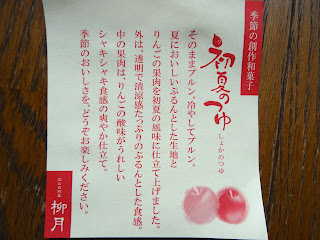 季節の創作和菓子
初夏のつゆ
しょかのつゆ
そのままプルン。冷やしてプルン。
夏においしいぷるんとした生地と
りんごの果肉を初夏の風味に仕立て上げました。
外は、透明で清涼感たっぷりのぷるんとした食感。
中の果肉は、りんごの酸味がうれしい
シャキシャキ食感の爽やか仕立て。
季節のおいしさを、どうぞお楽しみください。
柳月